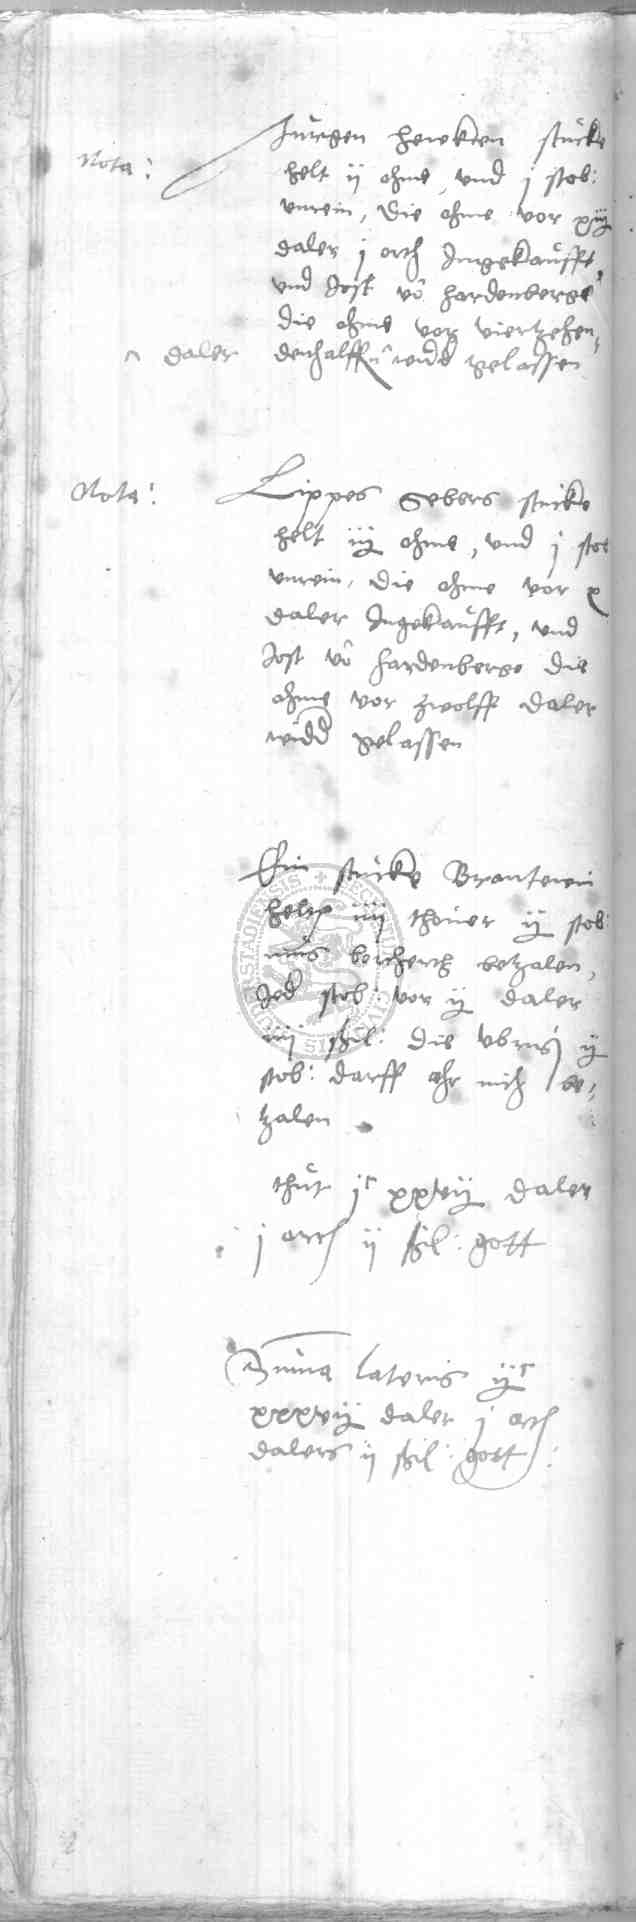 Nota: Jurgen henckten stucke
helt ij ohme, vnd j stob:
vnrein, die ohme vor xiij
daler j orth Ingekaufft
vnd Jost vo hardenberge
die ohme vor viertzehen,
^ daler denhalffn widd gelassen
Nota: Lippes Sebers stucke
helt iij ohme, vnd j stob
vnrein, die ohme vor x
daler Ingekaufft, vnd
Jost vo hardenberge die
ohme vor zwolff daler
widd gelassen
Ein stucke Brantewin
helt iiij ohmer ij stob:
mus betzalen,
Jed stob: vor ij daler
iiij ßil: die vbrig ij
stob: darff ehr nich be,
tzalen
thut jc xxvij daler
j orth ij ßil: gott
Suma lateris ijc
xxxvij daler j orth
dalers ij ßil: gott: